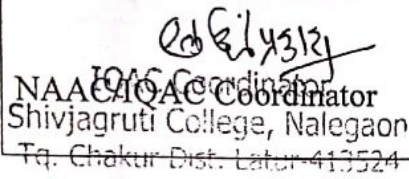 IQAC Coordinator
NAAC/IQAC Coordinator
Shivjagruti College, Nalegaon
Tq. Chakur Dist. Latur-413524